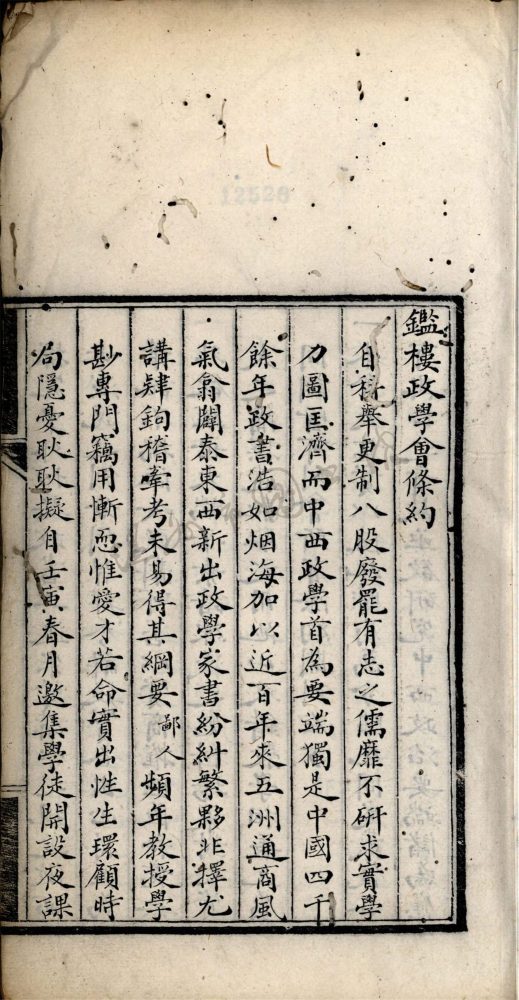 鑑樓政學會條約
自科舉更制八股廢罷有志之儒靡不硏求實學
力圖匡濟而中西政學首為要端獨是中國四千
餘年政書浩如烟海加以近百年來五洲通商風
氣翕闢泰東西新出政學家書紛糾繁夥非擇尤
講肄鉤稽牽考未易得其綱要鄙人頻年教授學
尠專門竊用慚恧惟愛才若命實出性生環顧時
局隱憂耿耿擬自壬寅春月邀集學徒開設夜課
12526